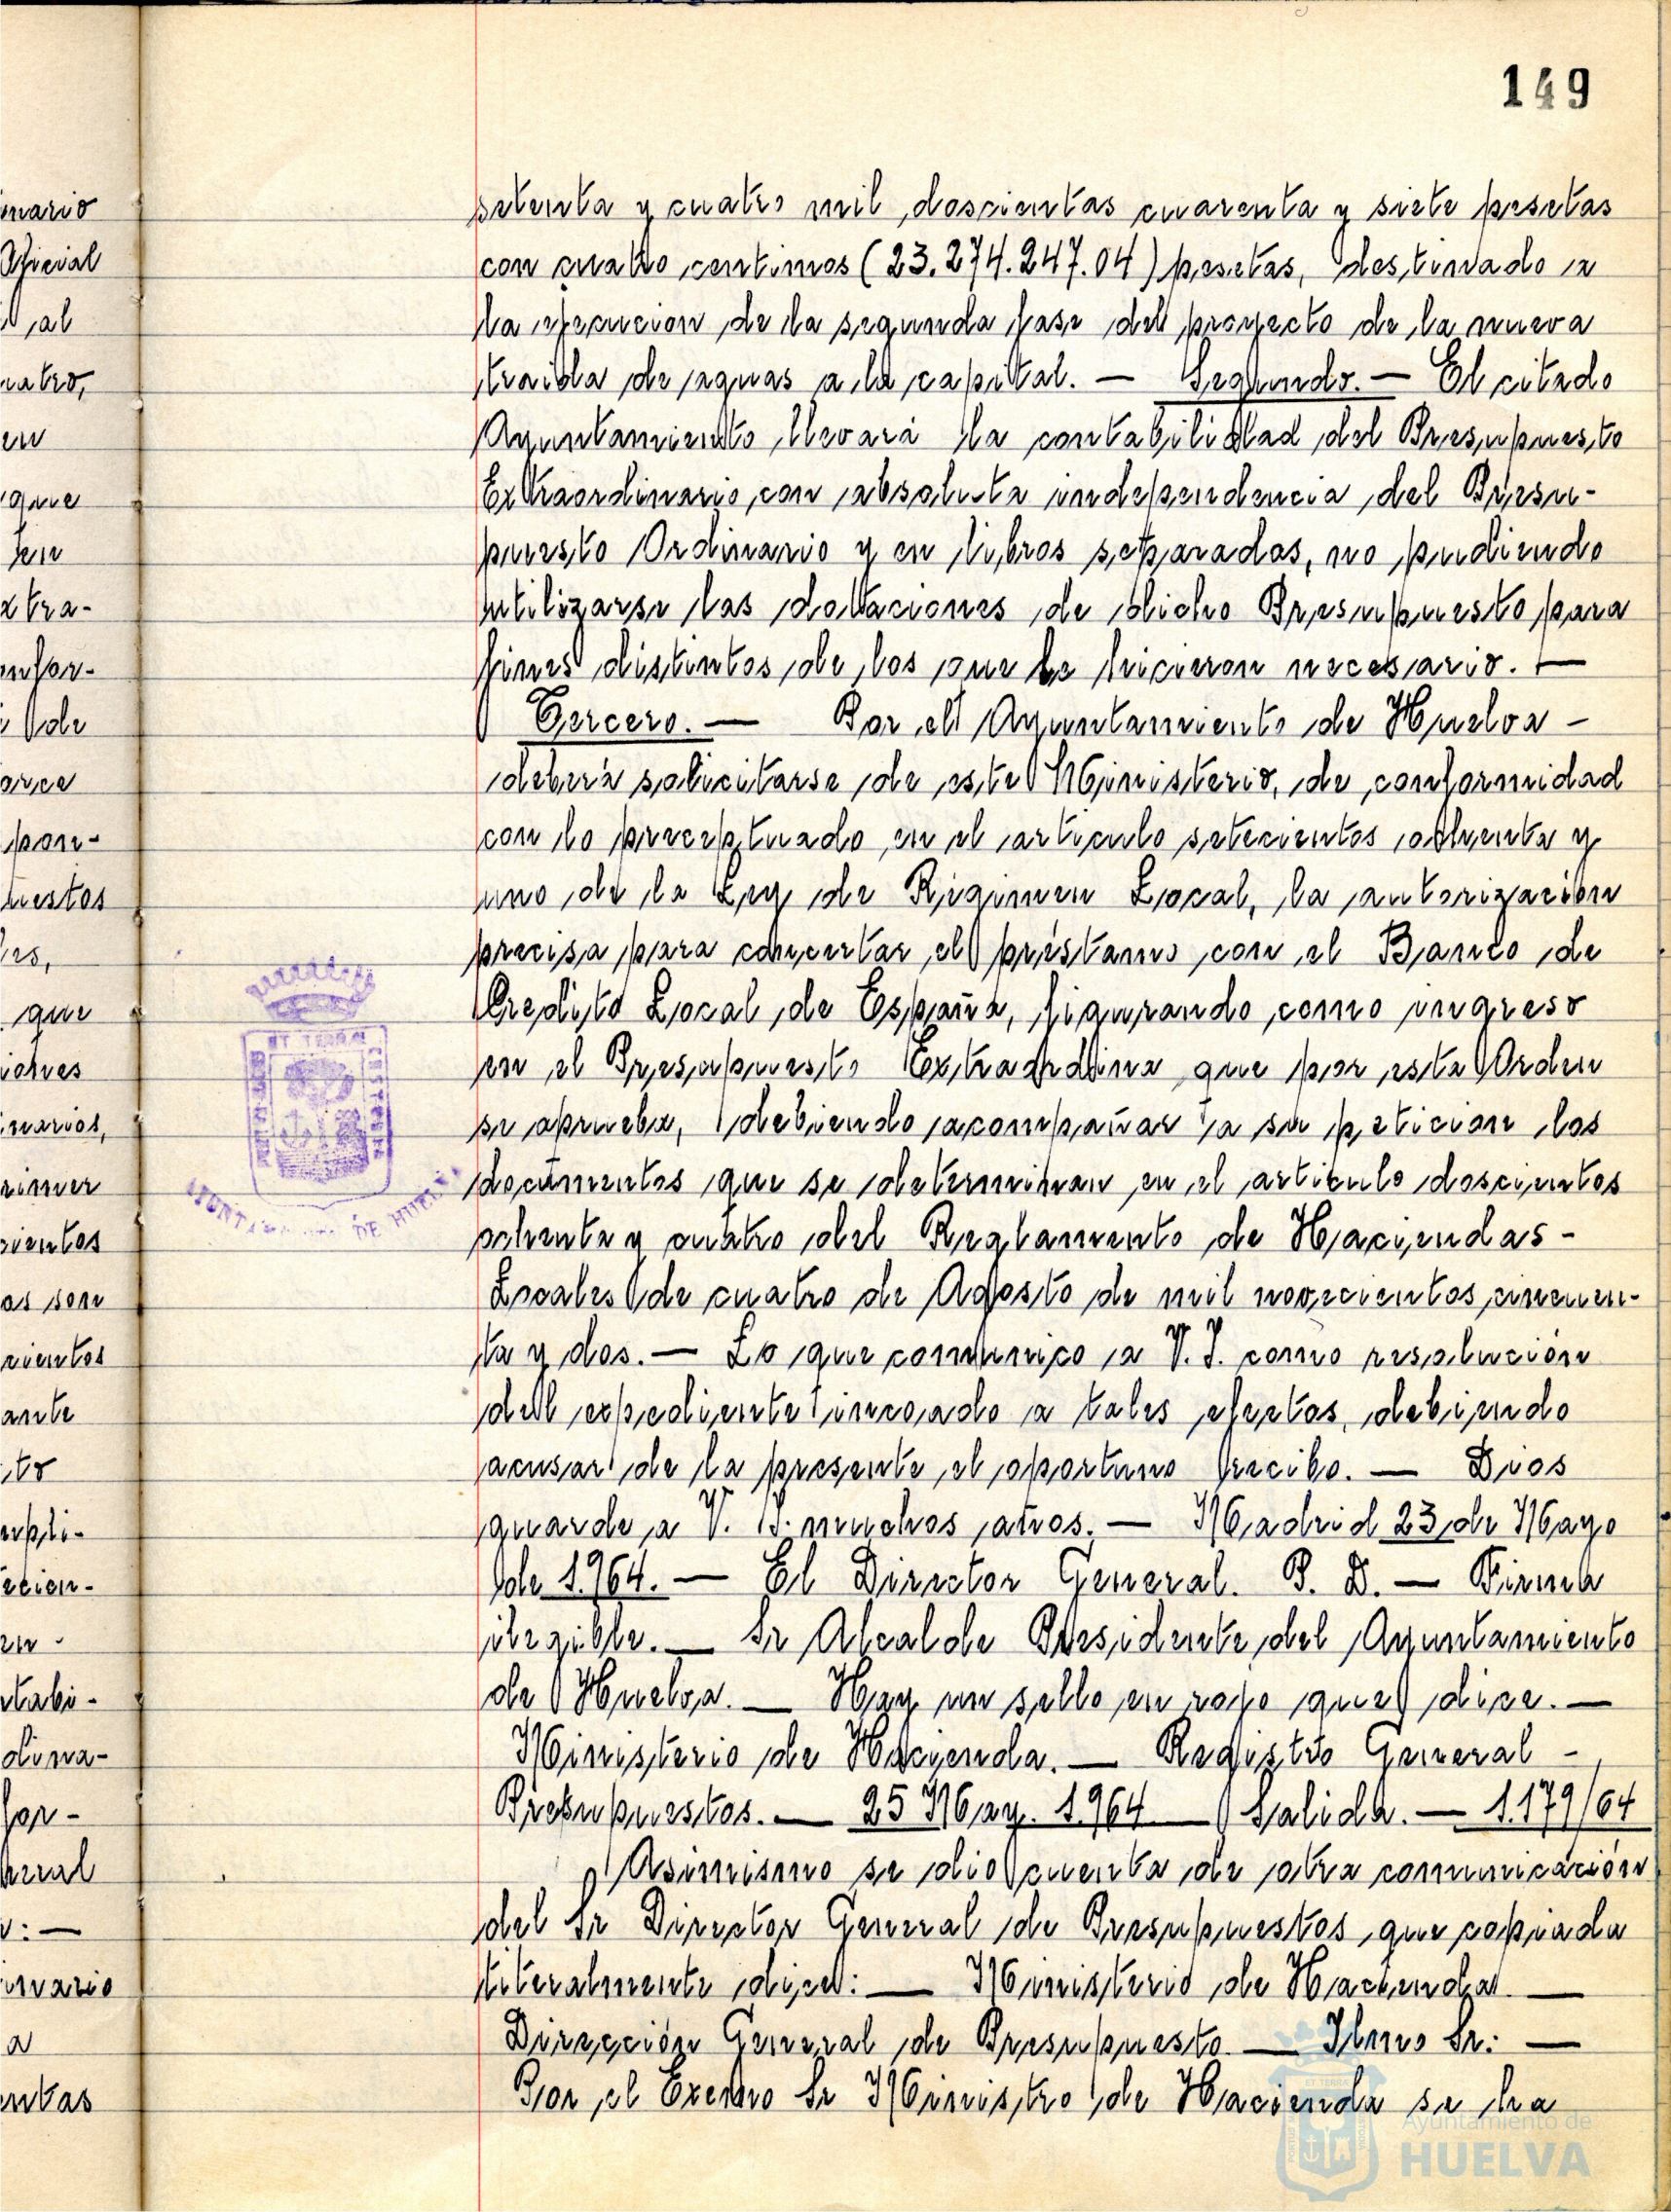 149
setenta y cuatro mil doscientas cuarenta y siete pesetas
con cuatro centimos (23.274.247.04) pesetas, destinado a
la ejecucion de la segunda fase del proyecto de la nueva
traida de aguas a la capital. — Segundo. — El citado
Ayuntamiento llevará la contabilidad del Presupuesto
Extraordinario con absoluta independencia del Presu-
puesto Ordinario y en libros separados, no pudiendo
utilizarse las dotaciones de dicho Presupuesto para
fines distintos de los que le hicieron necesario. —
Tercero. — Por el Ayuntamiento de Huelva -
deberá solicitarse de este Ministerio, de conformidad
con lo preceptuado en el articulo setecientos ochenta y
uno de la Ley de Regimen Local, la autorización
precisa para concertar el préstamo con el Banco de
Credito Local de España, figurando como ingreso
en el Presupuesto Extraordina que por esta Orden
se aprueba, debiendo acompañar a su peticion los
documentos que se determinan en el articulo doscientos
ochenta y cuatro del Reglamento de Haciendas -
Locales de cuatro de Agosto de mil novecientos cincuen-
ta y dos. — Lo que comunico a V. I. como resolución
del expediente incoado a tales efectos, debiendo
acusar de la presente el oportuno recibo. — Dios
guarde a V. I. muchos años. — Madrid 23 de Mayo
de 1.964. — El Director General. P. D. — Firma
ilegible. — Sr Alcalde Presidente del Ayuntamiento
de Huelva. — Hay un sello en rojo que dice. —
Ministerio de Hacienda. — Registro General -
Presupuestos. — 25 May. 1.964 — Salida. — 1.179/64
Asimismo se dio cuenta de otra comunicación
del Sr Director General de Presupuestos, que copiada
literalmente dice: — Ministerio de Hacienda —
Dirección General de Presupuesto — Ilmo Sr: —
Por el Excmo Sr Ministro de Hacienda se ha
AYUNTAMIENTO DE HUELVA
Ayuntamiento de
HUELVA
inario
Oficial
al
uatro,
en
que
tra-
de
pon-
uestos
que
iones
inarios,
rimer
cientos
as son
cientos
ante
ecien-
dina-
for-
inario
a
entas